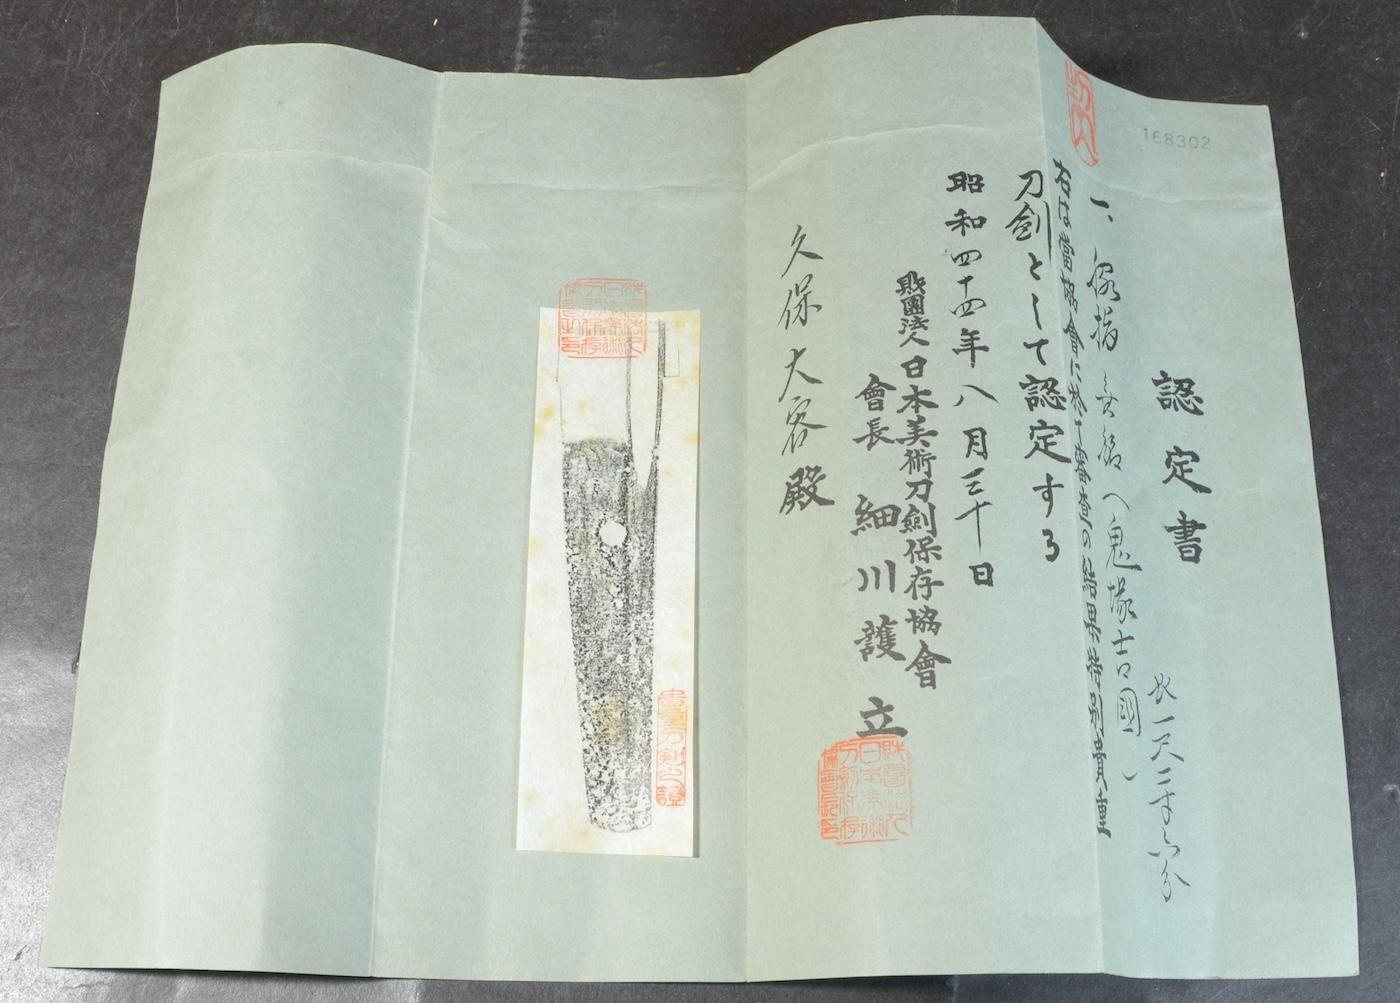 168302
認定書
一、脇指 無銘(鬼塚吉國)
長一尺二寸六分
右は當協會に於て審査の結果特別貴重
刀劍として認定する
昭和四十四年八月三十日
財團法人日本美術刀劍保存協會
會長 細川護立
久保大容殿
貴重刀剣之證